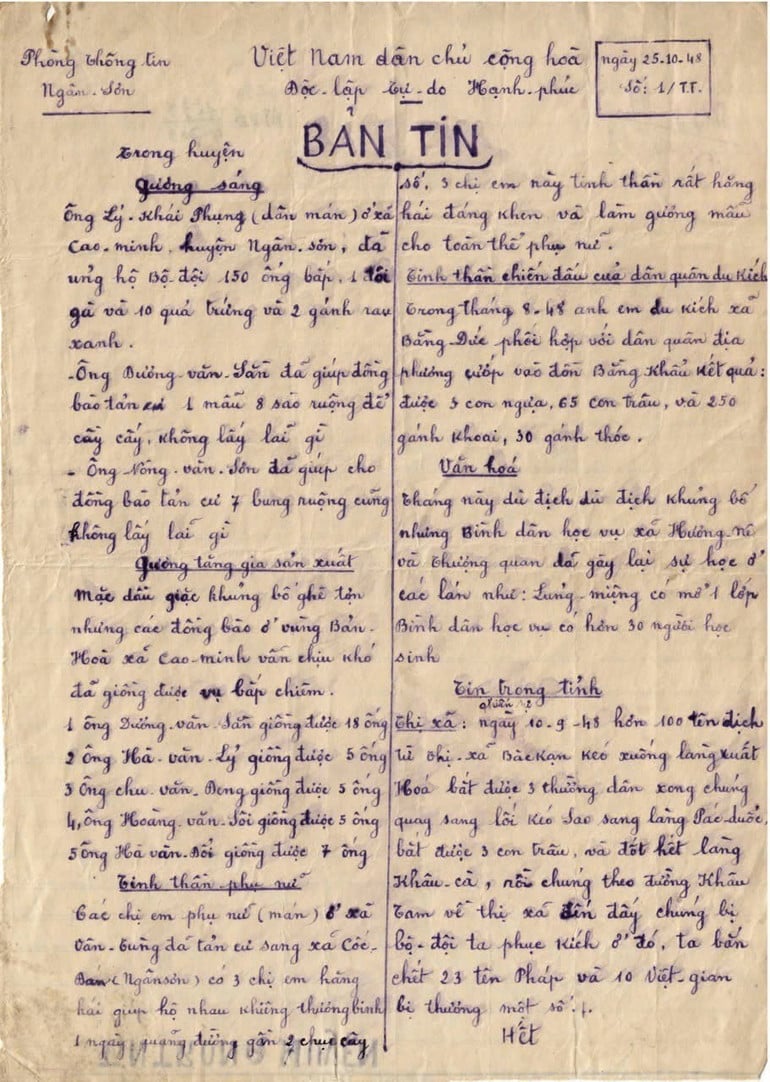 Phòng Thông tin
Ngân-Sơn
Việt Nam dân chủ cộng hoà
Độc-lập Tự-do Hạnh-phúc
ngày 25-10-48
Số: 1/T.T.
BẢN TIN
Trong huyện
Gương sáng
Ông Lý-Khải Phụng (dân mán) ở xã
Cao-minh huyện Ngân-sơn, đã
ủng hộ Bộ-đội 150 ống bắp, 1 đôi
gà và 10 quả trứng và 2 gánh rau
xanh.
-Ông Dương-văn-Sần đã giúp đồng
bào tản cư 1 mẫu 8 sào ruộng để
cầy cấy, không lấy lãi gì
-Ông Nông-văn-Sơn đã giúp cho
đồng bào tản cư 7 bung ruộng cũng
không lấy lãi gì
Gương tăng gia sản xuất
Mặc dầu giặc khủng bố ghê tợn
nhưng các đồng bào ở vùng Bản-
Hoà xã Cao-minh vẫn chịu khó
đã giồng được vụ bắp chiêm.
1 ông Dương-văn-Sần giồng được 18 ống
2 Ông Hà-văn-Lý giồng được 5 ống
3 Ông chu-văn-Deng giồng được 5 ống
4, Ông Hoàng-văn-Sôi giồng được 5 ống
5 Ông Hà văn-Bôi giồng được 7 ống
Tinh thần phụ nữ
Các chị em phụ nữ (mán) ở xã
Vân-Tùng đã tản cư sang xã Cốc-
Đán (Ngân sơn) có 3 chị em hăng
hái giúp hộ nhau khiêng thương binh
1 ngày quãng đường gần 2 chục cây
số. 3 chị em này tinh thần rất hăng
hái đáng khen và làm gương mẫu
cho toàn thể phụ nữ.
Tinh thần chiến đấu của dân quân du kích
Trong tháng 8-48 anh em du kích xã
Bằng-Đức phối hợp với dân quân địa
phương cướp vào đồn Bằng Khẩu kết quả:
được 3 con ngựa, 65 con trâu, và 250
gánh khoai, 30 gánh thóc.
Văn hoá
Tháng này dù địch dù địch khủng bố
nhưng Bình dân học vụ xã Hương-nê
và Thượng quan đã gây lại sự học ở
các lán như: Lủng-miệng có mở 1 lớp
Bình dân học vụ có hơn 30 người học
sinh
Tin trong tỉnh
Thị xã: ngày 10-9-48 hơn 100 tên địch
từ Thị-xã Bắc Kạn kéo xuống làng Xuất
Hoá bắt được 3 thường dân xong chúng
quay sang lối Kéo Sao sang làng Pác-duốc,
bắt được 3 con trâu, và đốt hết làng
Khâu-cà, rồi chúng theo đường Khâu
Tam về thị xã đến đây chúng bị
bộ-đội ta phục kích ở đó, ta bắn
chết 23 tên Pháp và 10 Việt-gian
bị thương một số./.
Hết